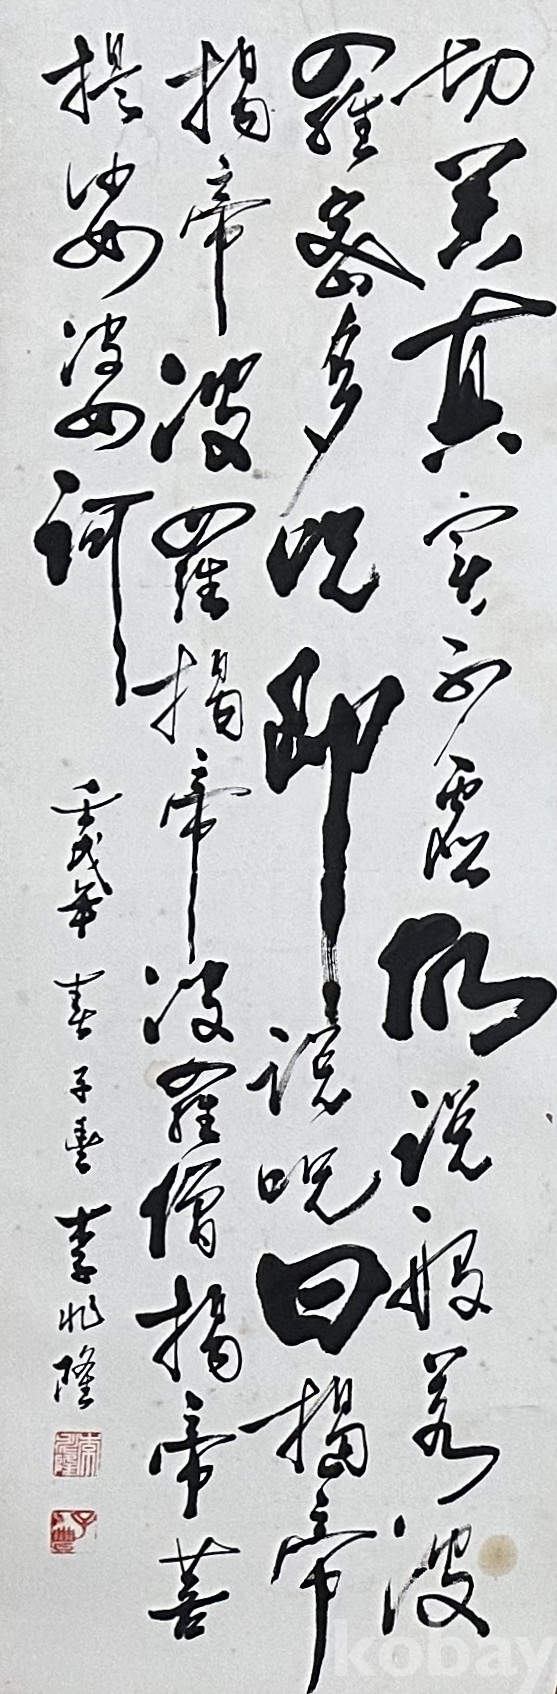 切苦真實不虛故說般若波
羅密多呪即說呪曰揭帝
揭帝波羅揭帝波羅僧揭帝菩
提娑婆訶 壬戌年 春 子豊 李兆隆
子豊
kobay